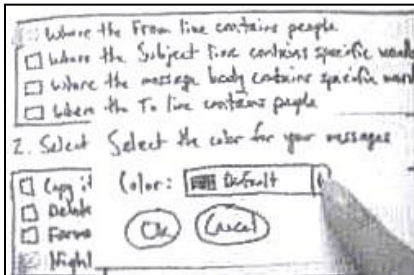 Where the From line contains people
Where the Subject line contains specific
where the message body contains specific
Where the To line contains people
2. Select
Select the color for your messages
Copy it
Color: Default
Delete
OK Cancel